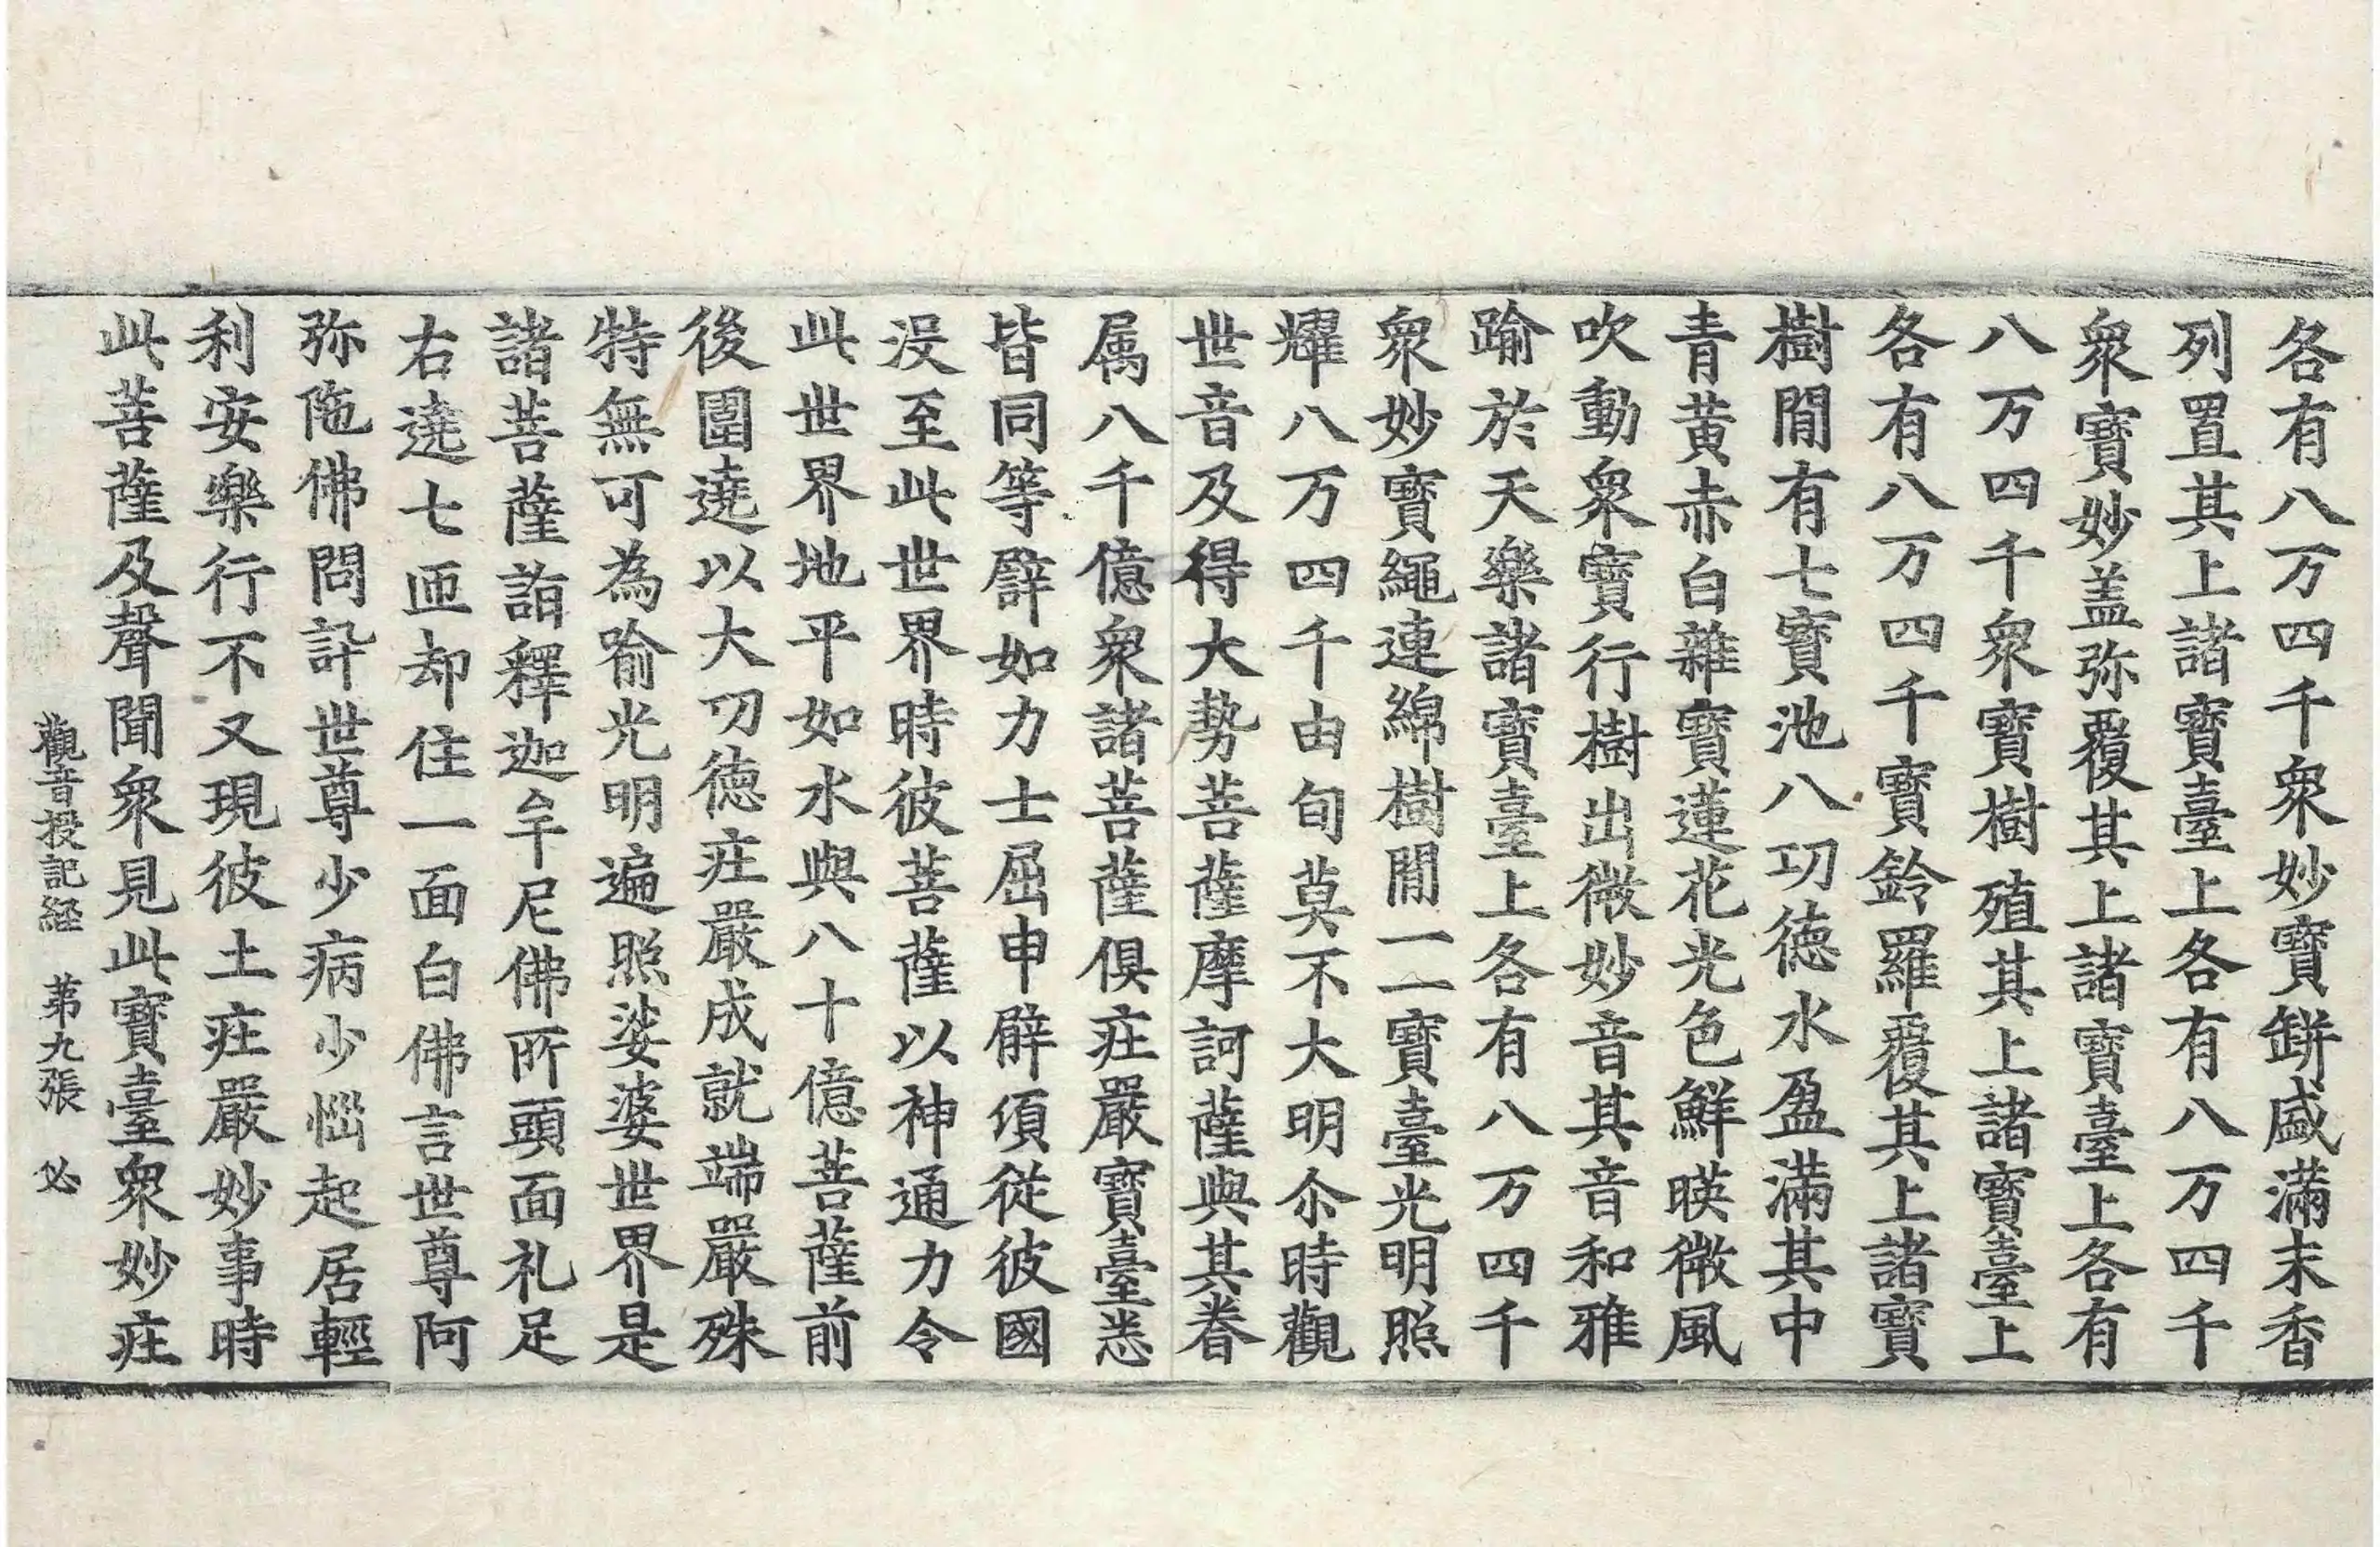 各有八万四千衆妙寶缾盛滿末香
列置其上諸寶臺上各有八万四千
衆寶妙盖弥覆其上諸寶臺上各有
八万四千衆寶樹殖其上諸寶臺上
各有八万四千寶鈴羅覆其上諸寶
樹閒有七寶池八功德水盈滿其中
青黄赤白雜寶蓮花光色鮮暎微風
吹動衆寶行樹出微妙音其音和雅
踰於天樂諸寶臺上各有八万四千
衆妙寶繩連綿樹閒一一寶臺光明照
耀八万四千由旬莫不大明尒時觀
世音及得大勢菩薩摩訶薩與其眷
属八千億衆諸菩薩俱庄嚴寶臺悉
皆同等譬如力士屈申臂湏從彼國
没至此世界時彼菩薩以神通力令
此世界地平如水與八十億菩薩前
後圍遶以大功德庄嚴成就端嚴殊
特無可為喻光明遍照娑婆世界是
諸菩薩詣釋迦牟尼佛所頭面礼足
右遶七匝却住一面白佛言世尊阿
弥陁佛問訊世尊少病少惱起居輕
利安樂行不又現彼土庄嚴妙事時
此菩薩及聲聞衆見此寶臺衆妙庄
觀音授記経 苐九張 必